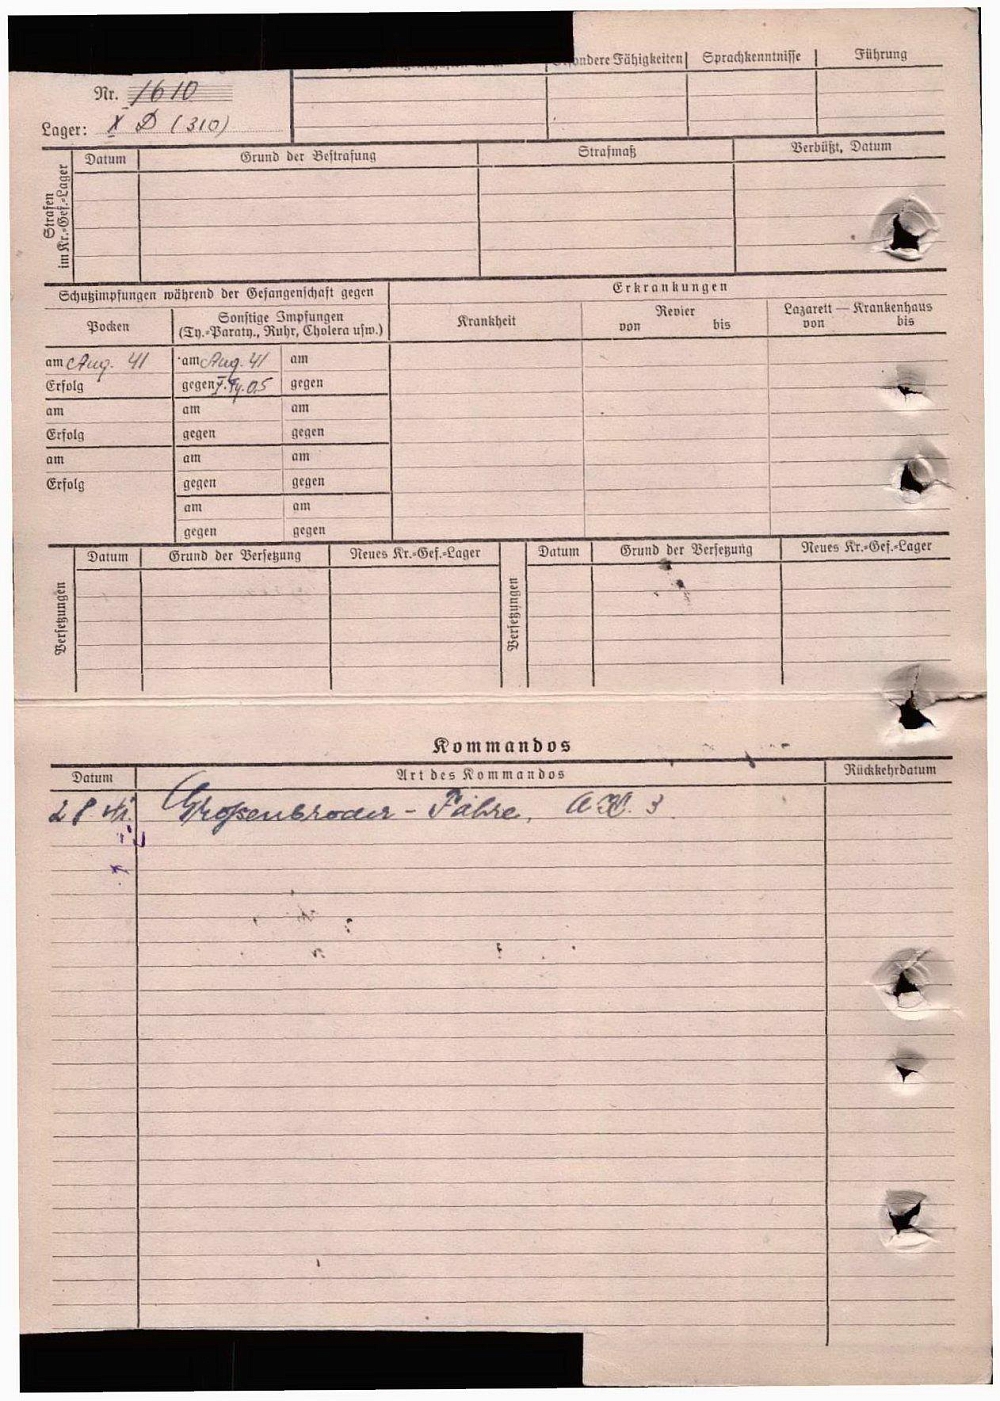 Fähigkeiten Sprachkenntnisse Führung
Nr. 1610
Lager: X D (310)
Strafen im Kr.-Gef.-Lager
Datum Grund der Bestrafung Strafmaß Verbüßt, Datum
Schutzimpfungen während der Gefangenschaft gegen Erkrankungen
Pocken Sonstige Impfungen (Ty.-Paraty., Ruhr, Cholera usw.) Krankheit Revier von bis Lazarett — Krankenhaus von bis
am Aug. 41 am Aug. 41 am
Erfolg gegen gegen
am am am
Erfolg gegen gegen
am am am
Erfolg gegen gegen
am am
gegen gegen
Versetzungen Datum Grund der Versetzung Neues Kr.-Gef.-Lager Versetzungen Datum Grund der Versetzung Neues Kr.-Gef.-Lager
Kommandos
Datum Art des Kommandos Rückkehrdatum
Großenbroder-Fähre, 3